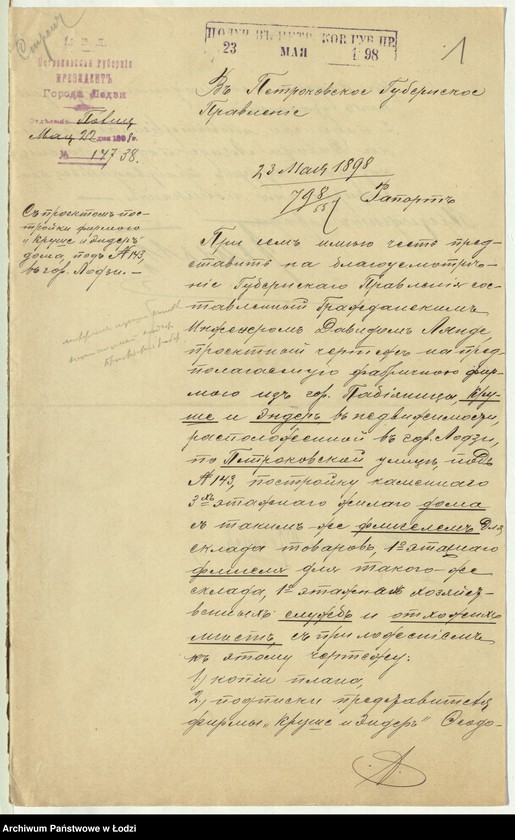 ПОЛУЧ. ВЪ ПЕТРОКОВ. ГУБ. ПР.
23 МАЯ 1898
1
М. В. Д.
Петроковская губернія
ПРЕЗИДЕНТЪ
Города Лодзи
Отдѣленіе Полиц.
Мая 22 дня 1898 г.
№ 14738.
Въ Петроковское Губернское
Правленіе
23 Мая 1898
798
Рапортъ
Съ проектомъ пос-
тройки фирмою
„Круше и Эндеръ"
дома, подъ № 143,
въ гор. Лодзи. —
При семъ имѣю честь пред-
ставить на благоусмотрѣ-
ніе Губернскаго Правленія сос-
тавленный Гражданскимъ
Инженеромъ Давидомъ Ланде
проектный чертежъ на пред-
полагаемую фабричною фир-
мою изъ гор. Пабіяницъ, Кру-
ше и Эндеръ, въ недвижимости,
расположенной въ гор. Лодзи,
по Петроковской улицѣ, подъ
№ 143, постройку каменнаго
3хъ этажнаго жилаго дома
съ такимъ-же флигелемъ для
склада товаровъ, 1о этажнаго
флигеля для такого-же
склада, 1о этажныхъ хозяйст-
венныхъ службъ и отхожихъ
мѣстъ, съ приложеніемъ
къ этому чертежу:
1) копіи плана,
2) подписки представителя
фирмы „Круше и Эндеръ" Ѳеодо-
Archiwum Państwowe w Łodzi